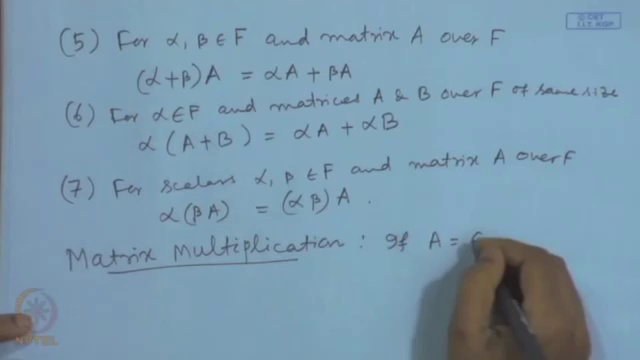 © CET
I.I.T. KGP
(5) For α, β ∈ F and matrix A over F
(α+β)A = αA + βA
(6) For α ∈ F and matrices A & B over F of same size
α (A+B) = αA + αB
(7) For scalars α, β ∈ F and matrix A over F
α(βA) = (αβ)A .
Matrix Multiplication : If A = (
NPTEL